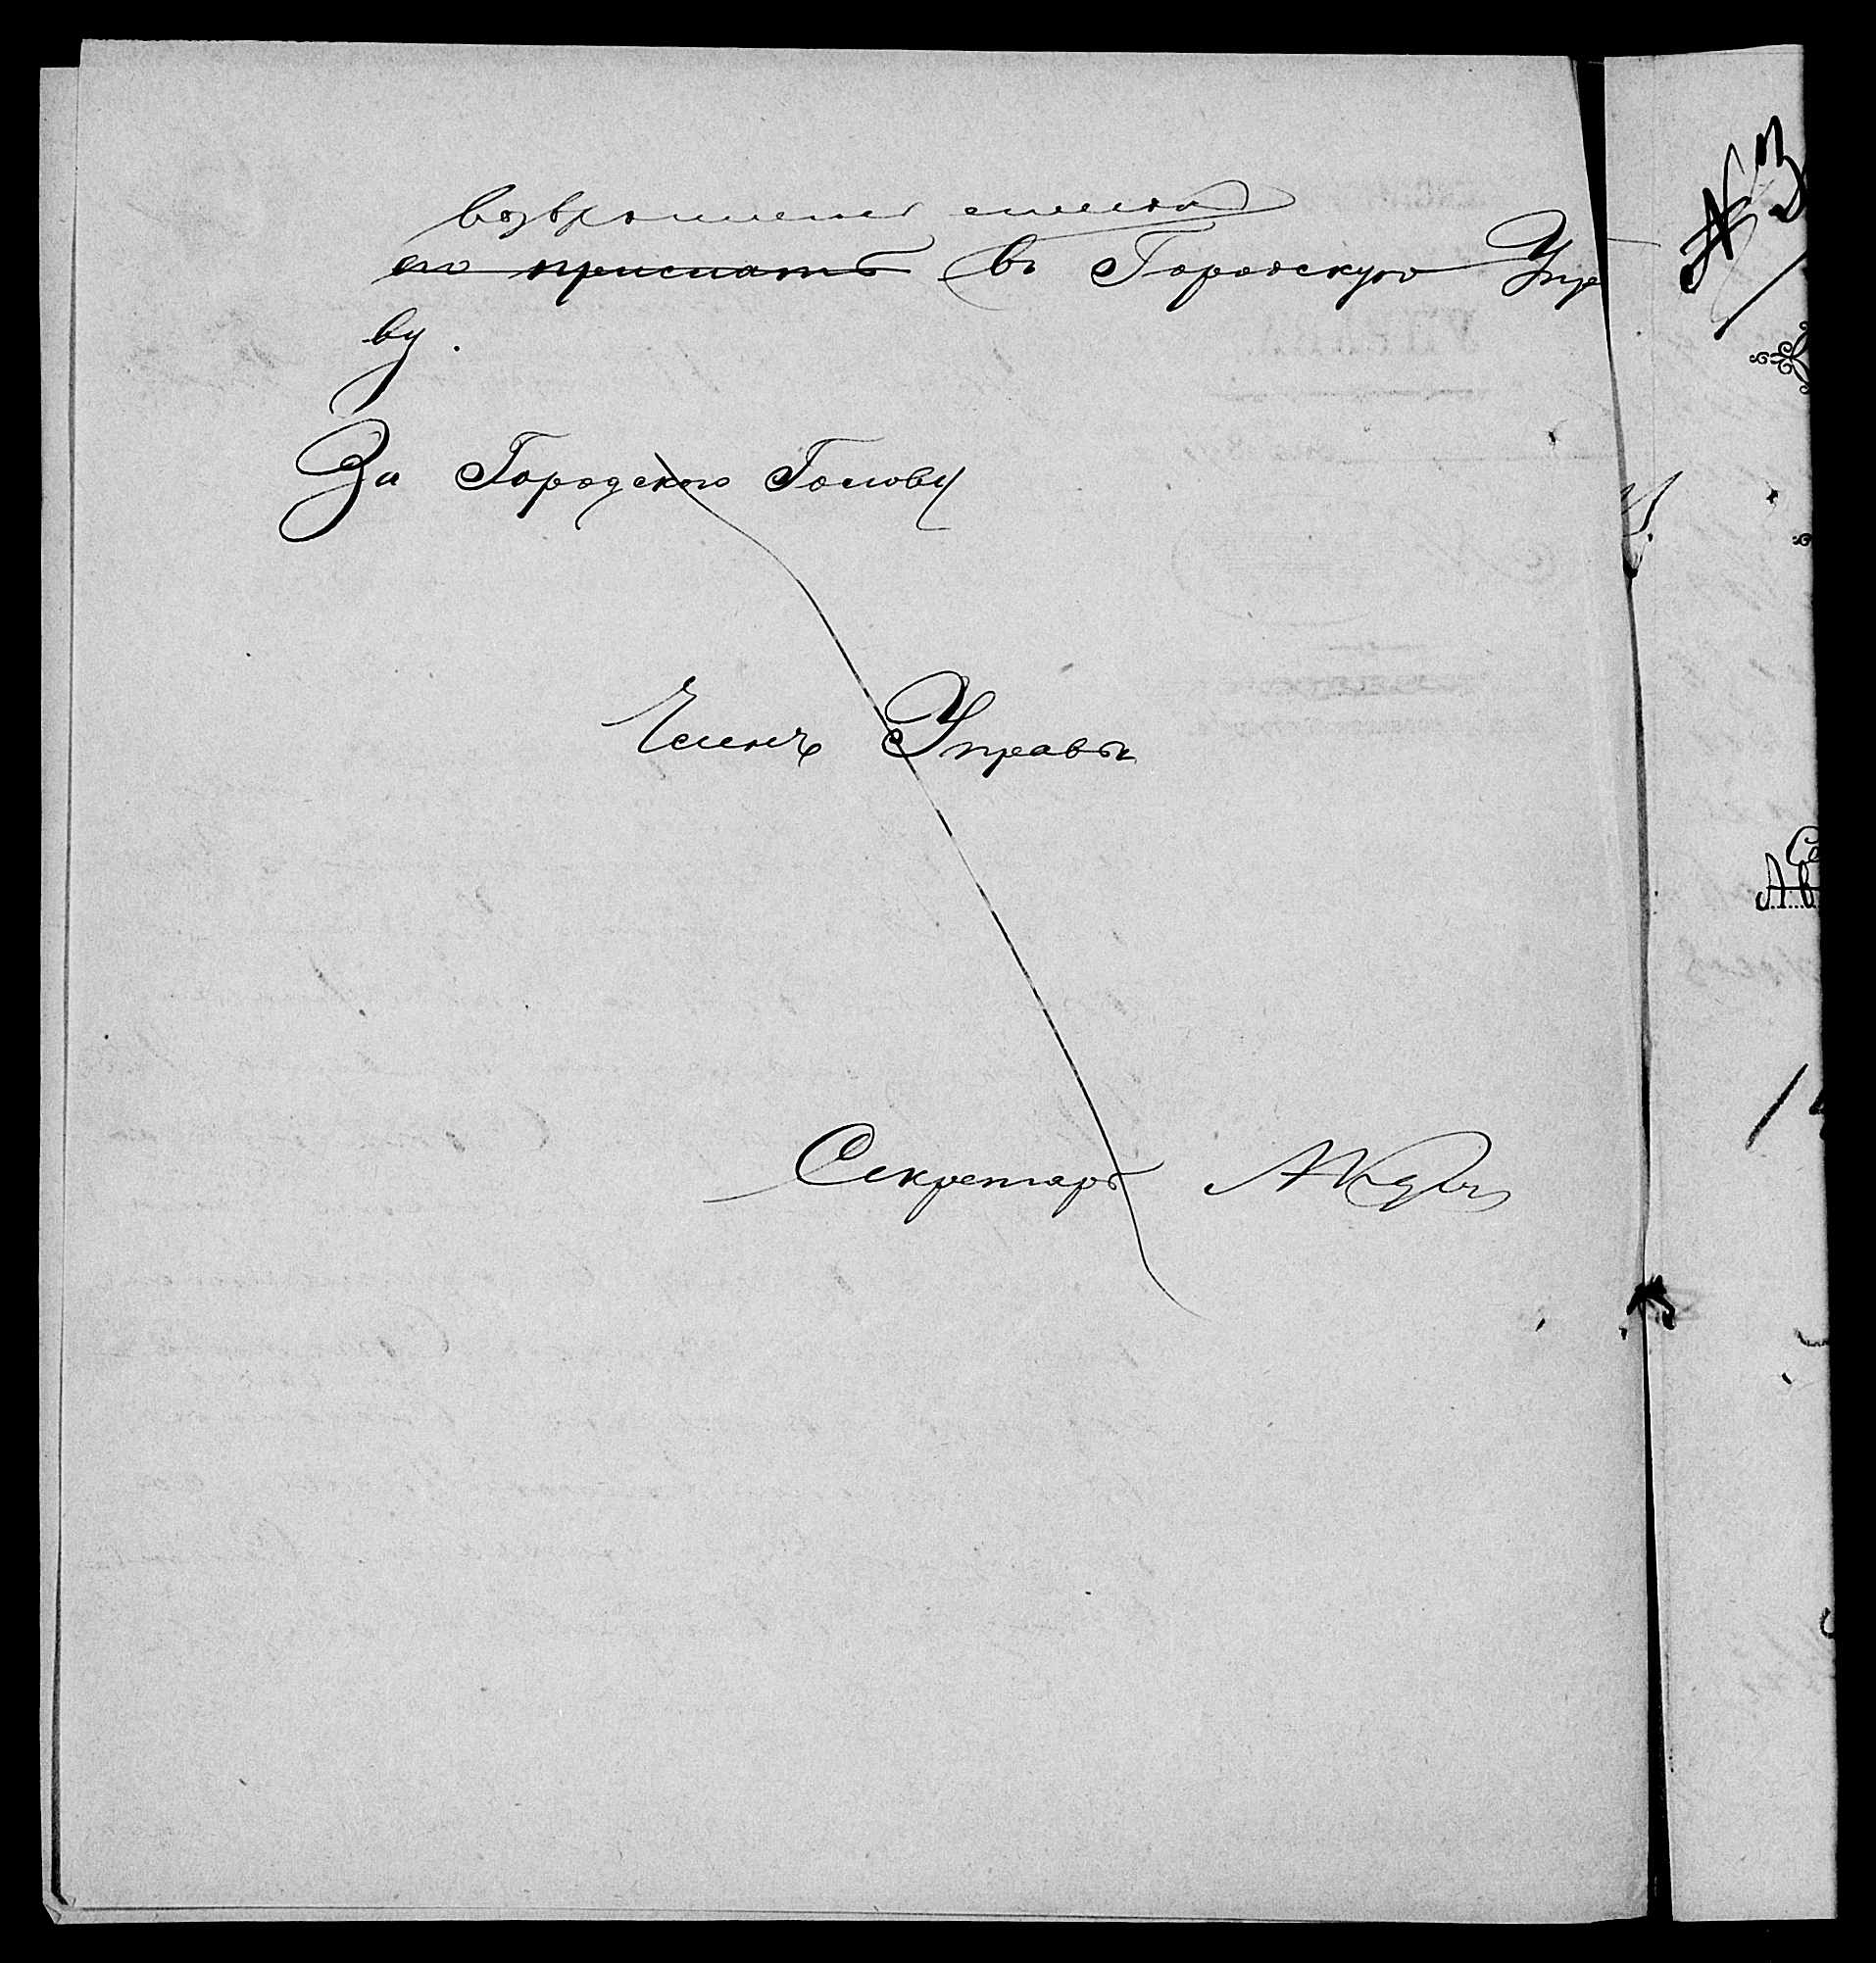 возвращенiя списка
его прислать въ Городскую Упра
ву.
За Городского Голову
Членъ Управы
Секретарь